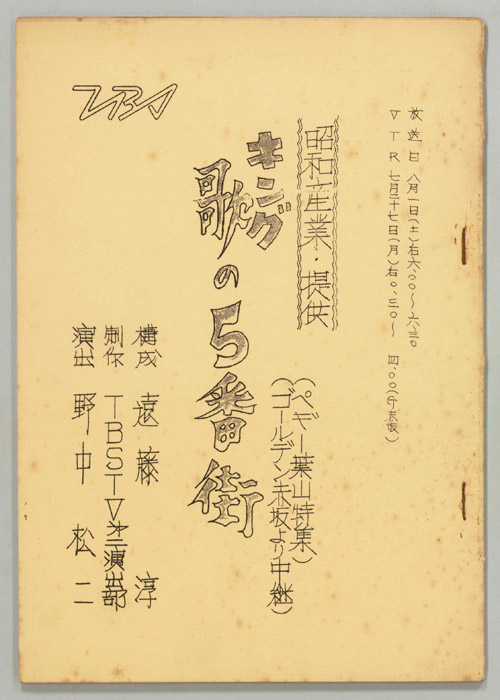 放送日 八月一日(土)右六.〇〇〜六.三〇
VTR 七月二十七日(月)右〇.三〇〜四.〇〇
昭和産業・提供
キング
歌の5番街
(ペギー葉山特集)
(ゴールデン赤坂より中継)
構成 遠藤淳
制作 TBSTV第二演出部
演出 野中松二
TBS